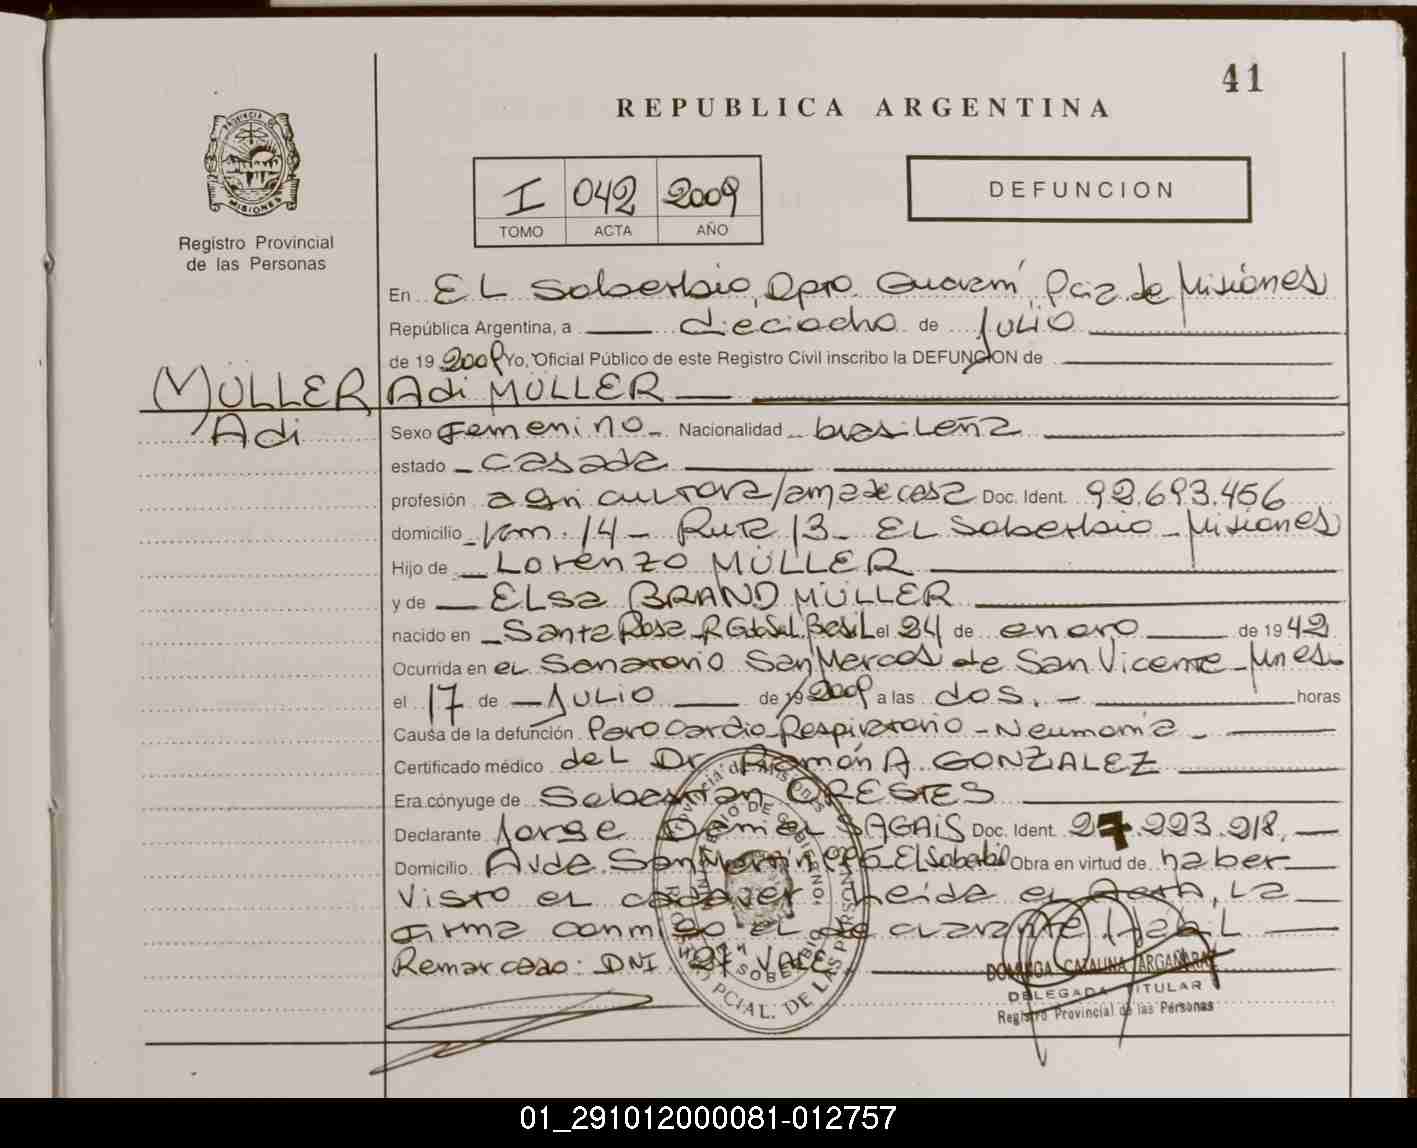 41
REPUBLICA ARGENTINA
PROVINCIA DE
MISIONES
Registro Provincial
de las Personas
I 042 2009
TOMO ACTA AÑO
DEFUNCION
En EL Soberbio, Dpto. Guaraní, Pcia. de Misiones
República Argentina, a dieciocho de Julio
de 19 2009 Yo, Oficial Público de este Registro Civil inscribo la DEFUNCION de
MÜLLER, Adi MÜLLER
Adi
Sexo Femenino Nacionalidad brasileña
estado casada
profesión agricultora/ama de casa Doc. Ident. 92.693.456
domicilio Km. 14 - Ruta 13 - EL Soberbio - Misiones
Hijo de Lorenzo MÜLLER
y de ELsa BRAND MÜLLER
nacido en Santa Rosa R.G.do Sul, Brasil el 24 de enero de 1942
Ocurrida en el Sanatorio San Marcos de San Vicente - Mnes.
el 17 de JULIO de 19 2009 a las dos. - horas
Causa de la defunción Paro Cardio Respiratorio - Neumonía -
Certificado médico del Dr. Ramón A. GONZALEZ
Era cónyuge de Sebastian ORESTES
Declarante Jorge Daniel SAGAIS Doc. Ident. 27.223.218,
Domicilio Avda. San Martín El Soberbio Obra en virtud de haber
visto el cadáver Leida el Acta, La
firma conmigo el declarante Hábil
Remarcado: DNI 27 VALE
DOMINGA CATALINA ARGAÑARAZ
DELEGADA TITULAR
Registro Provincial de las Personas
Provincia de Misiones
MINISTERIO DE GOBIERNO
EL SOBERBIO
REGISTRO PCIAL. DE LAS PERSONAS
01_291012000081-012757